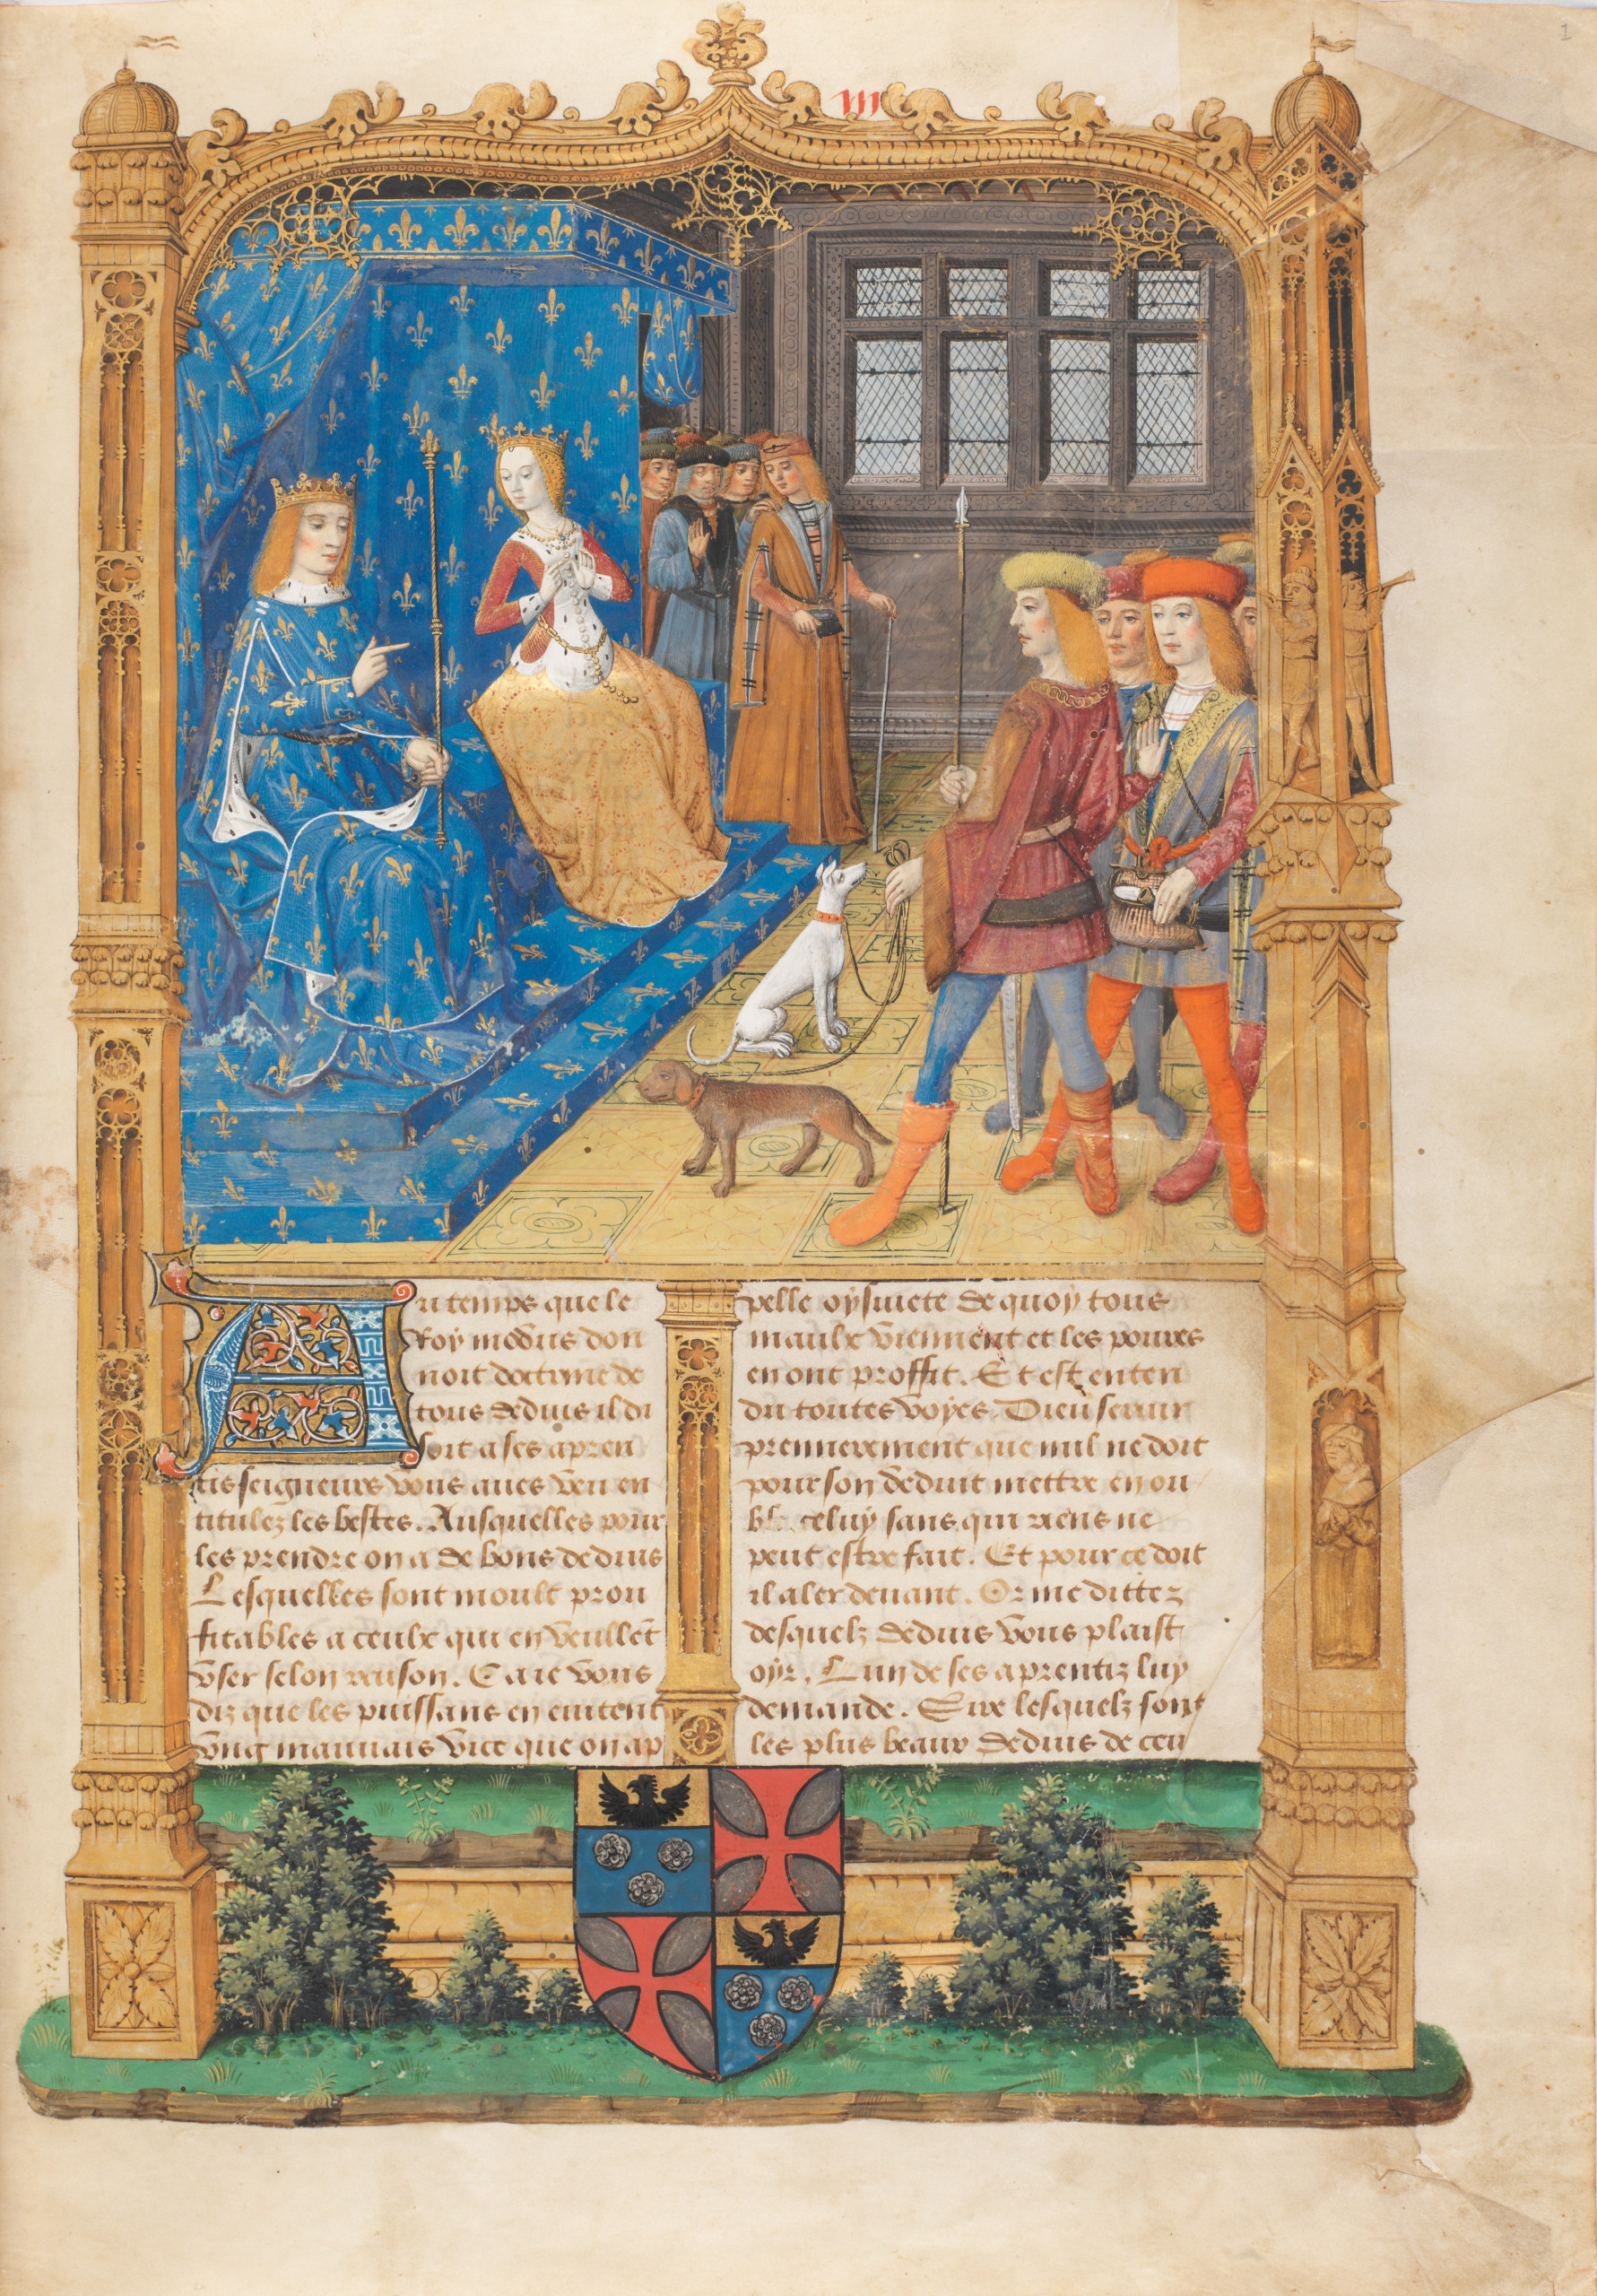 1
III
Au temps que le
Roy modus don
noit doctrine de
tous deduis il di
soit a ses apren
tis seigneurs vous aues veu en
titulez les bestes. Ausquelles pour
les prendre on a de bons deduis
Lesquelles sont moult prou
fitables a ceulx qui en veullēt
vser selon raison. Car ie vous
diz que les puissans en euitent
vng mauuais vice que on ap
pelle oysiuete de quoy tous
maulx viennent et les poures
en ont proffit. Et est enten
du toutes voyes Dieu seruir
premierement que nul ne doit
pour son deduit mettre en ou
celuy sans qui riens ne
peut estre fait. Et pour ce doit
il aler deuant. Or me dittez
desquelz deduis vous plaist
oyr. Lun de ses aprentiz luy
demande. Sire lesquelz sont
les plus beaux deduis de ceu